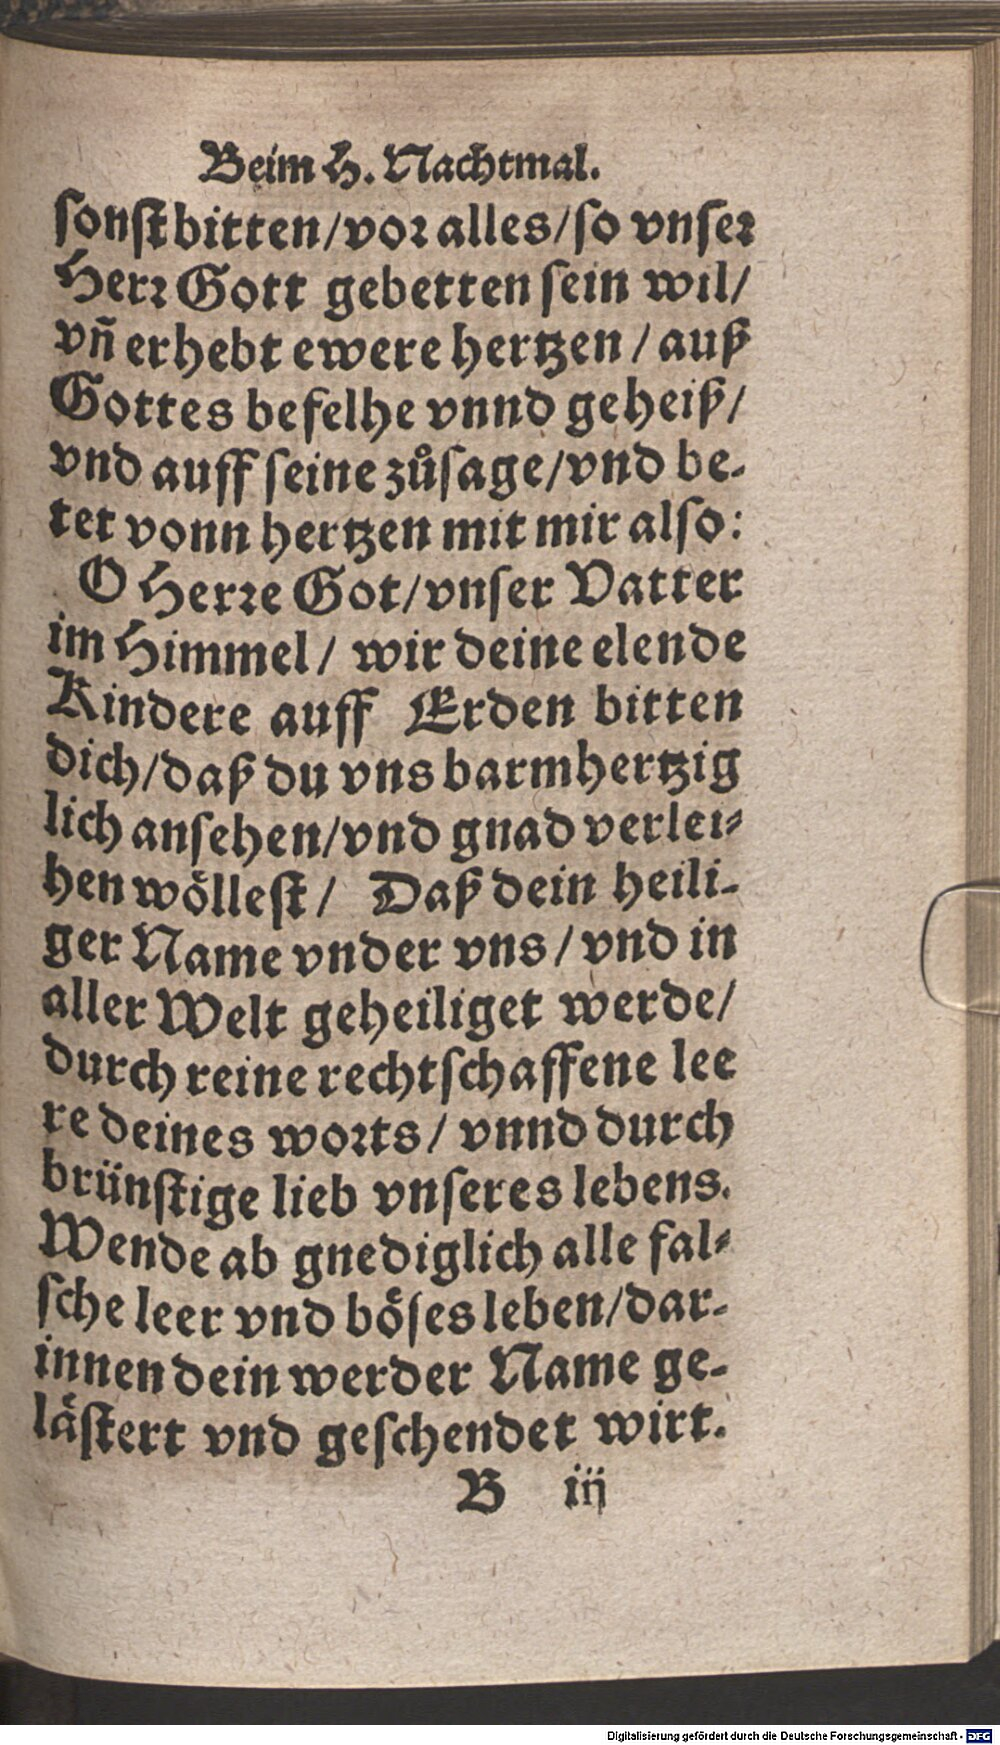 Beim H. Nachtmal.
sonst bitten/vor alles/so vnser
Herr Gott gebetten sein wil/
vñ erhebt ewere hertzen / auß
Gottes befelhe vnnd geheiß/
vnd auff seine zůsage/vnd be-
tet vonn hertzen mit mir also:
O Herre Got/vnser Vatter
im Himmel/ wir deine elende
Kindere auff Erden bitten
dich/daß du vns barmhertzig
lich ansehen/vnd gnad verlei-
hen wöllest/ Daß dein heili-
ger Name vnder vns/vnd in
aller Welt geheiliget werde/
durch reine rechtschaffene lee
re deines worts/ vnnd durch
brünstige lieb vnseres lebens.
Wende ab gnediglich alle fal-
sche leer vnd böses leben/dar-
innen dein werder Name ge-
lästert vnd geschendet wirt.
B iij
Digitalisierung gefördert durch die Deutsche Forschungsgemeinschaft - DFG